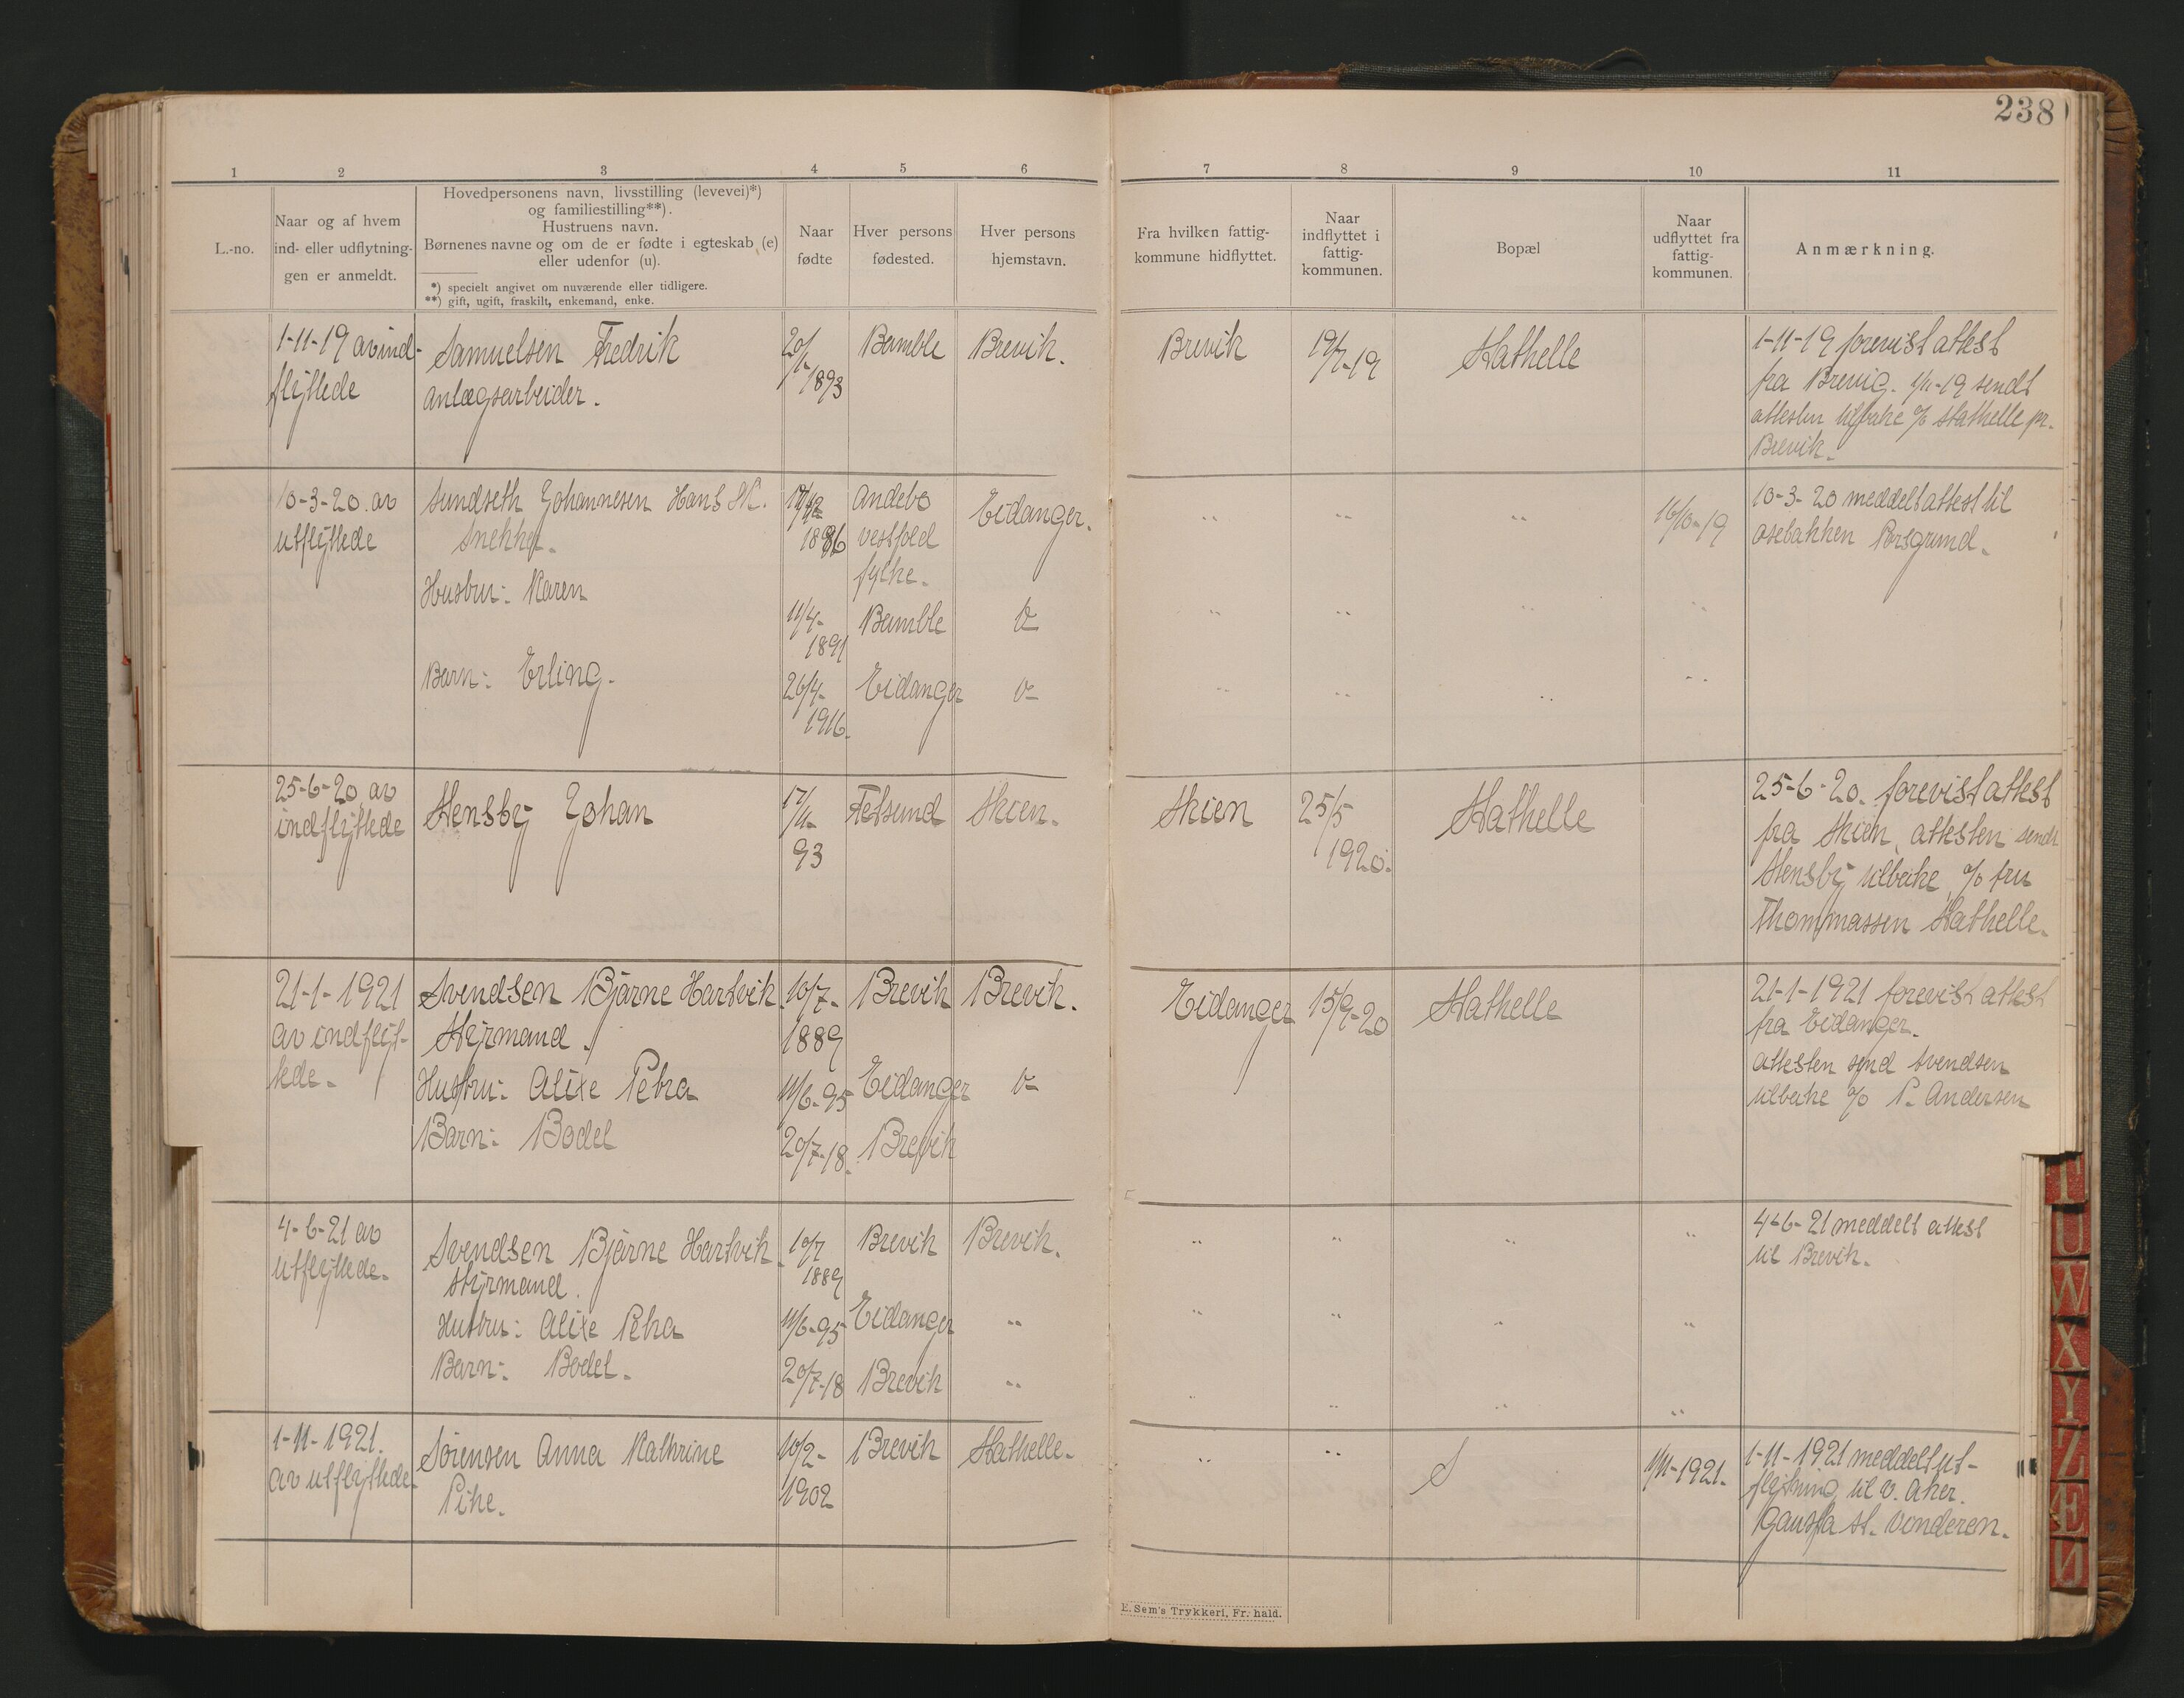 238
1 2 3 4 5 6 7 8 9 10 11
L.-no.
Naar og af hvem
ind- eller udflytnin-
gen er anmeldt.
Hovedpersonens navn, livsstilling (levevei)*)
og familiestilling**).
Hustruens navn.
Børnenes navne og om de er fødte i egteskab (e)
eller udenfor (u).
*) specielt angivet om nuværende eller tidligere.
**) gift, ugift, fraskilt, enkemand, enke.
Naar
fødte
Hver persons
fødested.
Hver persons
hjemstavn.
Fra hvilken fattig-
kommune hidflyttet.
Naar
indflyttet i
fattig-
kommunen.
Bopæl
Naar
udflyttet fra
fattig-
kommunen.
Anmærkning.
1-11-19 av ind-
flyttede
Samuelsen Fredrik
anlægsarbeider.
20/1-
1893
Bamble
Brevik.
Brevik
19/7-19
Stathelle
1-11-19 forevist attest
fra Brevig. 1/11-19 sendt
attesten tilbake c/o Stathelle pr.
Brevik.
10-3-20. av
utflyttede
Sundseth Johannesen Hans M.
Snekker.
1886
Andebo
vestfold
fylke.
Eidanger.
" " "
16/10-19
10-3-20 meddelt attest til
osebakken Porsgrund.
Hustru: Karen
11/4-
1891
Bamble
" " " "
Barn: Erling.
26/4-
1916.
Eidanger
" " " "
25-6-20. av
indflyttede
Stensby Johan
17/11-
93
Fetsund
Skien.
Skien
25/5
1920.
Stathelle
25-6-20. forevist attest
fra Skien, attesten sendt
Stensby tilbake c/o fru
Thommassen Stathelle.
21-1-1921
av indflyt-
tede.
Svendsen Bjarne Hartvik.
Styrmand.
10/7-
1889
Brevik
Brevik.
Eidanger
15/9-20
Stathelle
21-1-1921 forevist attest
fra Eidanger.
attesten send Svendsen
tilbake c/o P. Andersen
Hustru: Alixe Petra
11/6-95
Eidanger
Barn: Bodel
20/7-18.
Brevik
4-6-21 av
utflyttede.
Svendsen Bjarne Hartvik.
Styrmand.
10/7
1889
Brevik
Brevik.
" " " "
4-6-21 meddelt attest
til Brevik.
Hustru: Alixe Petra
11/6-95
Eidanger
" " " " "
Barn: Bodel.
20/7-18
Brevik
" " " " "
1-11-1921.
av utflyttede.
Sörensen Anna Kathrine
Pike.
10/2-
1902
Brevik
Stathelle.
" "
S
1/11-1921.
1-11-1921 meddelt ut-
flytning til v. Aker.
Gausta st. Vonderen.
E. Sem's Trykkeri, Fr.hald.
U
W
X
Y
Z
Æ